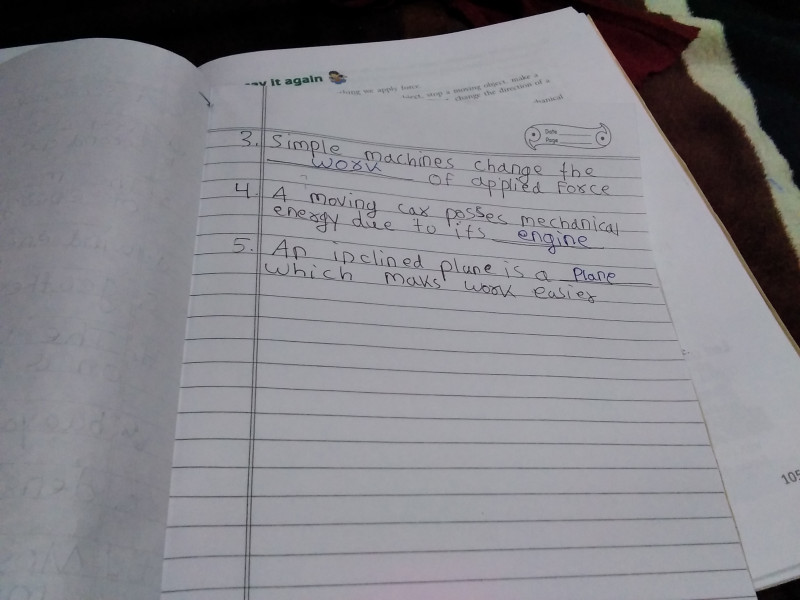 ay it again
thing we apply force.
ject, stop a moving object, make a
change the direction of a
hanical
Date
Page
3. Simple machines change the
work of applied force
4. A moving car posses mechanical
energy due to its engine
5. An inclined plane is a Plane
which maks work easier
105